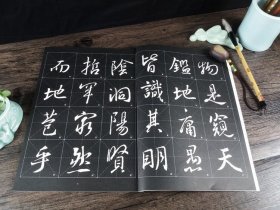 物是窺天
鑑地庸愚
皆識其明
陰洞陽賢
哲罕窮然
而地苞乎